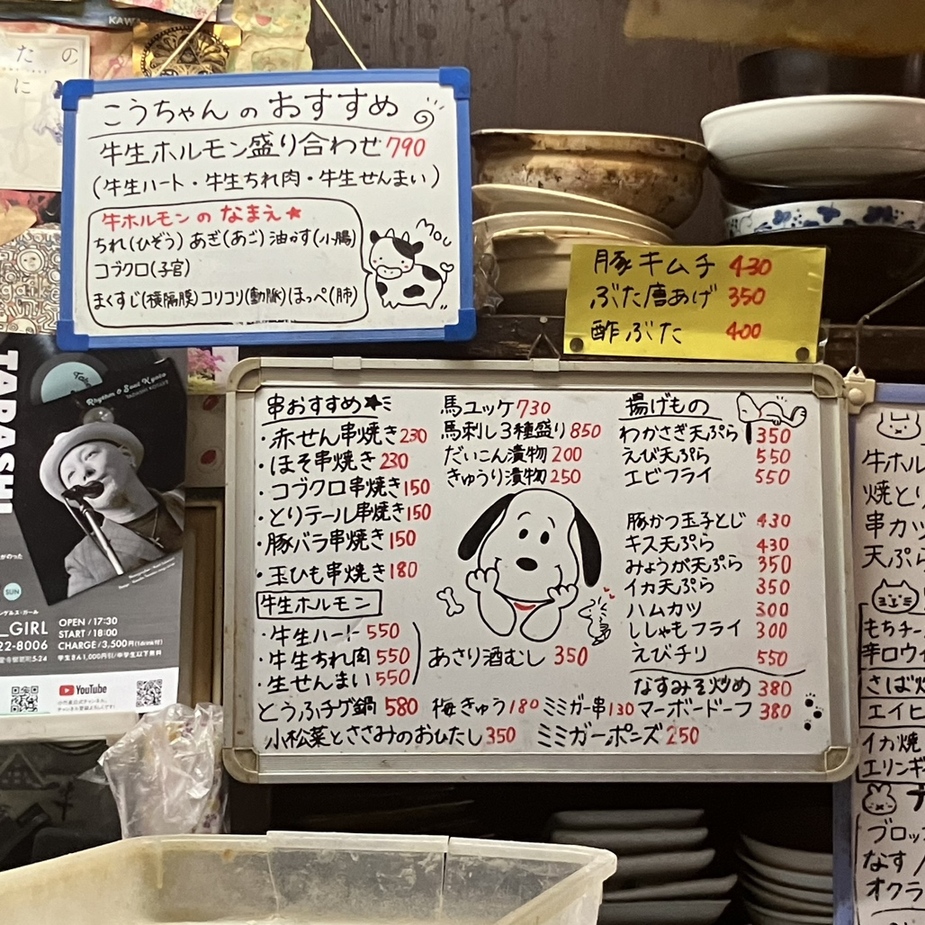 KAWA
たの
に
こうちゃんのおすすめ
牛生ホルモン盛り合わせ790
(牛生ハート・牛生ちれ肉・牛生せんまい)
牛ホルモンのなまえ★
ちれ(ひぞう) あぎ(あご) 油かす(小腸)
コブクロ(子宮)
まくすじ(横隔膜) コリコリ(動脈) ほっぺ(肺)
MOU
豚キムチ 430
ぶた唐あげ 350
酢ぶた 400
串おすすめ★
・赤せん串焼き230
・ほそ串焼き230
・コブクロ串焼き150
・とりテール串焼き150
・豚バラ串焼き150
・玉ひも串焼き180
牛生ホルモン
・牛生ハート550
・牛生ちれ肉550
・生せんまい550
とうふチゲ鍋580
小松菜とささみのおひたし350
馬ユッケ730
馬刺し3種盛り850
だいこん漬物200
きゅうり漬物250
あさり酒むし350
梅きゅう180
ミミガー串130
ミミガーポニズ250
揚げもの
わかさぎ天ぷら350
えび天ぷら550
エビフライ550
豚かつ玉子とじ430
キス天ぷら430
みょうが天ぷら350
イカ天ぷら350
ハムカツ300
ししゃもフライ300
えびチリ550
なすみそ炒め380
マーボードーフ380
牛ホル
焼とり
串カツ
天ぷら
もちチー
辛口ウィ
さば
エイヒ
イカ焼
エリンギ
ブロッ
なす
オクラ
TADASHI
Rhythm & Soul Kyoto
SUN
ングルス・ガール
_GIRL
22-8006
OPEN / 17:30
START / 18:00
CHARGE / 3,500円(1drink付)
学生さん1,000円引/中学生以下無料
YouTube